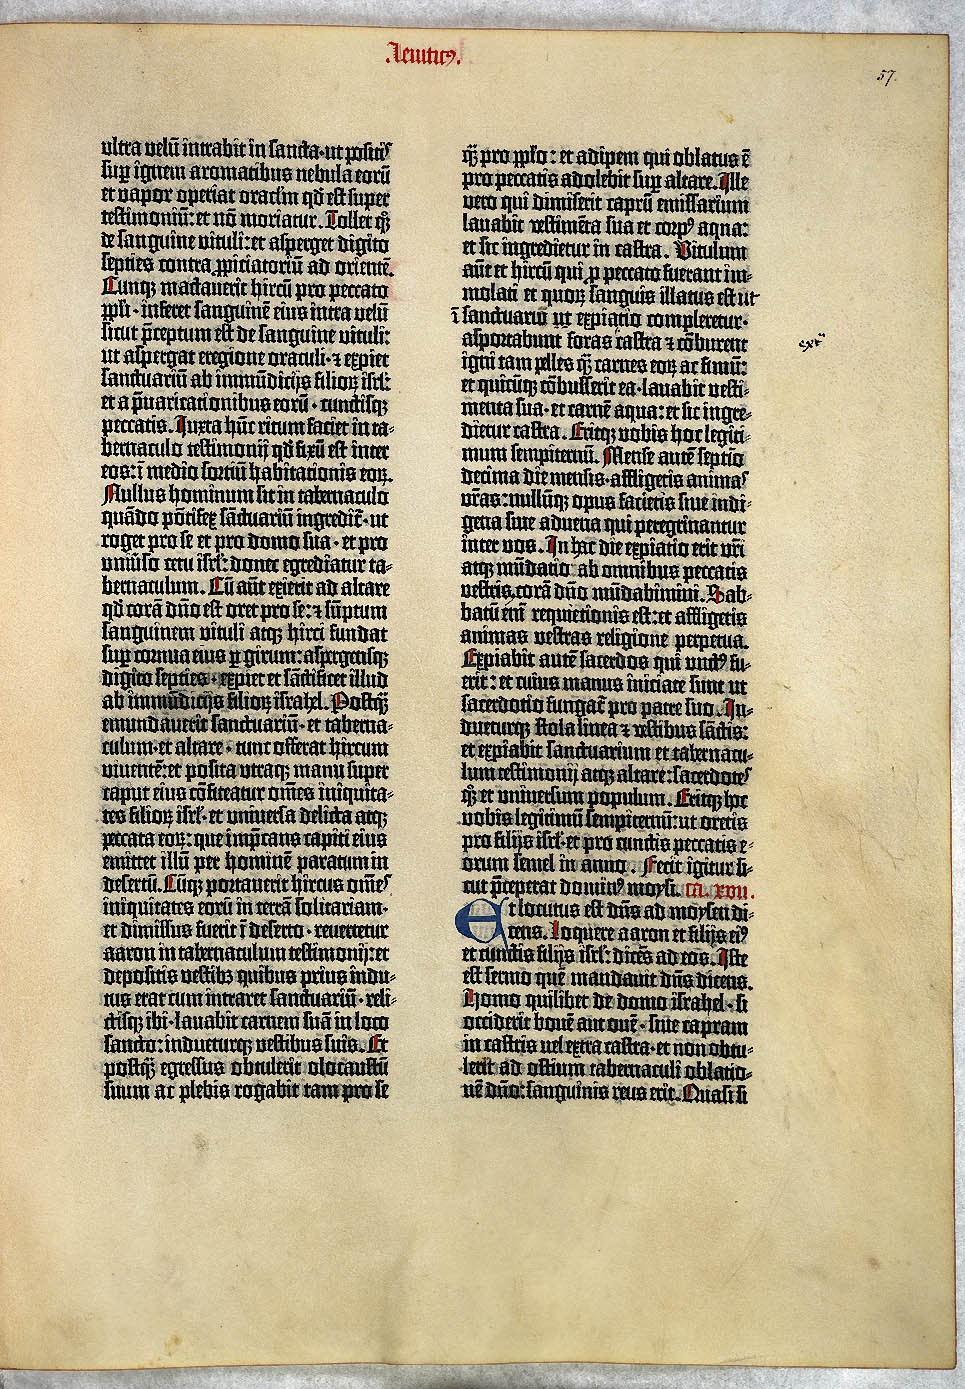 Leuiticꝰ.
57.
vltra velū intrabit in sancta · ut positis
suꝑ ignem aromatibus nebula eorū
et vapor operiat oraclm qd̄ est super
testimoniū: et nō moriatur. Tollet qꝫ
de sanguine vituli: et asperget digito
septies contra ꝓpiciatoriū ad orientē.
Cunqꝫ mactauerit hircū pro peccato
ppl̓i · inferet sanguinē eius intra velū
sicut p̄ceptum est de sanguine vituli:
ut aspergat eregione oraculi · ⁊ expiet
sanctuariū ab immūdicijs filioꝝ isrl̓:
et a p̄uaricationibus eorū · cunctisqꝫ
peccatis. Iuxta hūc ritum faciet in ta-
bernaculo testimonij qd̄ fixū est inter
eos: ī medio sortiū habitationis eoꝝ.
Nullus hominum sit in tabernaculo
quādo pōtifex sāctuariū ingredit̄ · ut
roget pro se et pro domo sua · et pro
vniūso cetu isrl̓: donec egrediatur ta-
bernaculum. Cū aūt exierit ad altare
qd̄ corā dn̄o est oret pro se: ⁊ sūptum
sanguinem vituli atqꝫ hirci fundat
suꝑ cornua eius ꝑ girum: aspergensqꝫ
digito septies · expiet et sāctificet illud
ab immūdicijs filioꝝ israhel. Postqꝫ̄
emundauerit sanctuariū · et taberna-
culum · et altare · tunc offerat hircum
viuentē: et posita vtraqꝫ manu super
caput eius cōfiteatur om̄es iniquita-
tes filioꝝ isrl̓ · et vniuersa delicta atqꝫ
peccata eoꝝ: que imp̄cans capiti eius
emittet illū per hominē paratum in
desertū. Cūqꝫ portauerit hircus om̄es
iniquitates eorū in terrā solitariam ·
et dimissus fuerit ī deserto · reuertetur
aaron in tabernaculum testimonij: et
depositis vestibꝫ quibus prius indu-
tus erat cum intraret sanctuariū · reli-
ctisqꝫ ibi · lauabit carnem suā in loco
sancto: indueturqꝫ vestibus suis. Et
postqꝫ̄ egressus obtulerit olocaustū
suum ac plebis rogabit tam pro se
qꝫ̄ pro ppl̓o: et adipem qui oblatus ē
pro peccatis adolebit suꝑ altare. Ille
vero qui dimiserit caprū emissarium
lauabit vestimēta sua et corpꝰ aqua:
et sic ingredietur in castra. Vitulum
aūt et hircū qui ꝓ peccato fuerant im-
molati et quoꝝ sanguis illatus est ut
ī sanctuariū ut expiatio compleretur ·
asportabunt foras castra ⁊ cōburent
igni tam pelles qꝫ̄ carnes eoꝝ ac fimū:
et quicūqꝫ cōbusserit ea · lauabit vesti-
menta sua · et carnē aqua: et sic ingre-
dietur castra. Eritqꝫ vobis hoc legiti-
mum sempiternū. Mense autē septīo
decima die mensis · affligetis animas
vr̄as: nullūqꝫ opus facietis siue indi-
gena siue aduena qui peregrinantur
inter vos. In hac die expiatio erit vr̄i
atqꝫ mūdatio ab omnibus peccatis
vestris, corā dn̄o mūdabimini. Sab-
batū em̄ requietionis est: et affligetis
animas vestras religione perpetua.
Expiabit autē sacerdos qui vnctꝰ fu-
erit: et cuius manus iniciate sunt ut
sacerdotio fungat̄ pro patre suo. In-
dueturqꝫ stola linea ⁊ vestibus sāctis:
et expiabit sanctuarium et tabernacu-
lum testimonij atqꝫ altare: sacerdotes
qꝫ et vniuersum populum. Eritqꝫ hoc
vobis legitimū sempiternū: ut oretis
pro filijs isrl̓ · et pro cunctis peccatis e-
orum semel in anno. Fecit igitur si-
cut p̄ceperat dominꝰ moysi. ca. xvii.
Et locutus est dn̄s ad moysen di-
cens. Loquere aaron et filijs eiꝰ
et cunctis filijs isrl̓: dicēs ad eos. Iste
est sermo quē mandauit dn̄s dicens.
Homo quilibet de domo israhel · si
occiderit bouē aut ouē · siue capram
in castris uel extra castra · et non obtu-
lerit ad ostium tabernaculi oblatio-
nē dn̄o: sanguinis reus erit. Quasi si